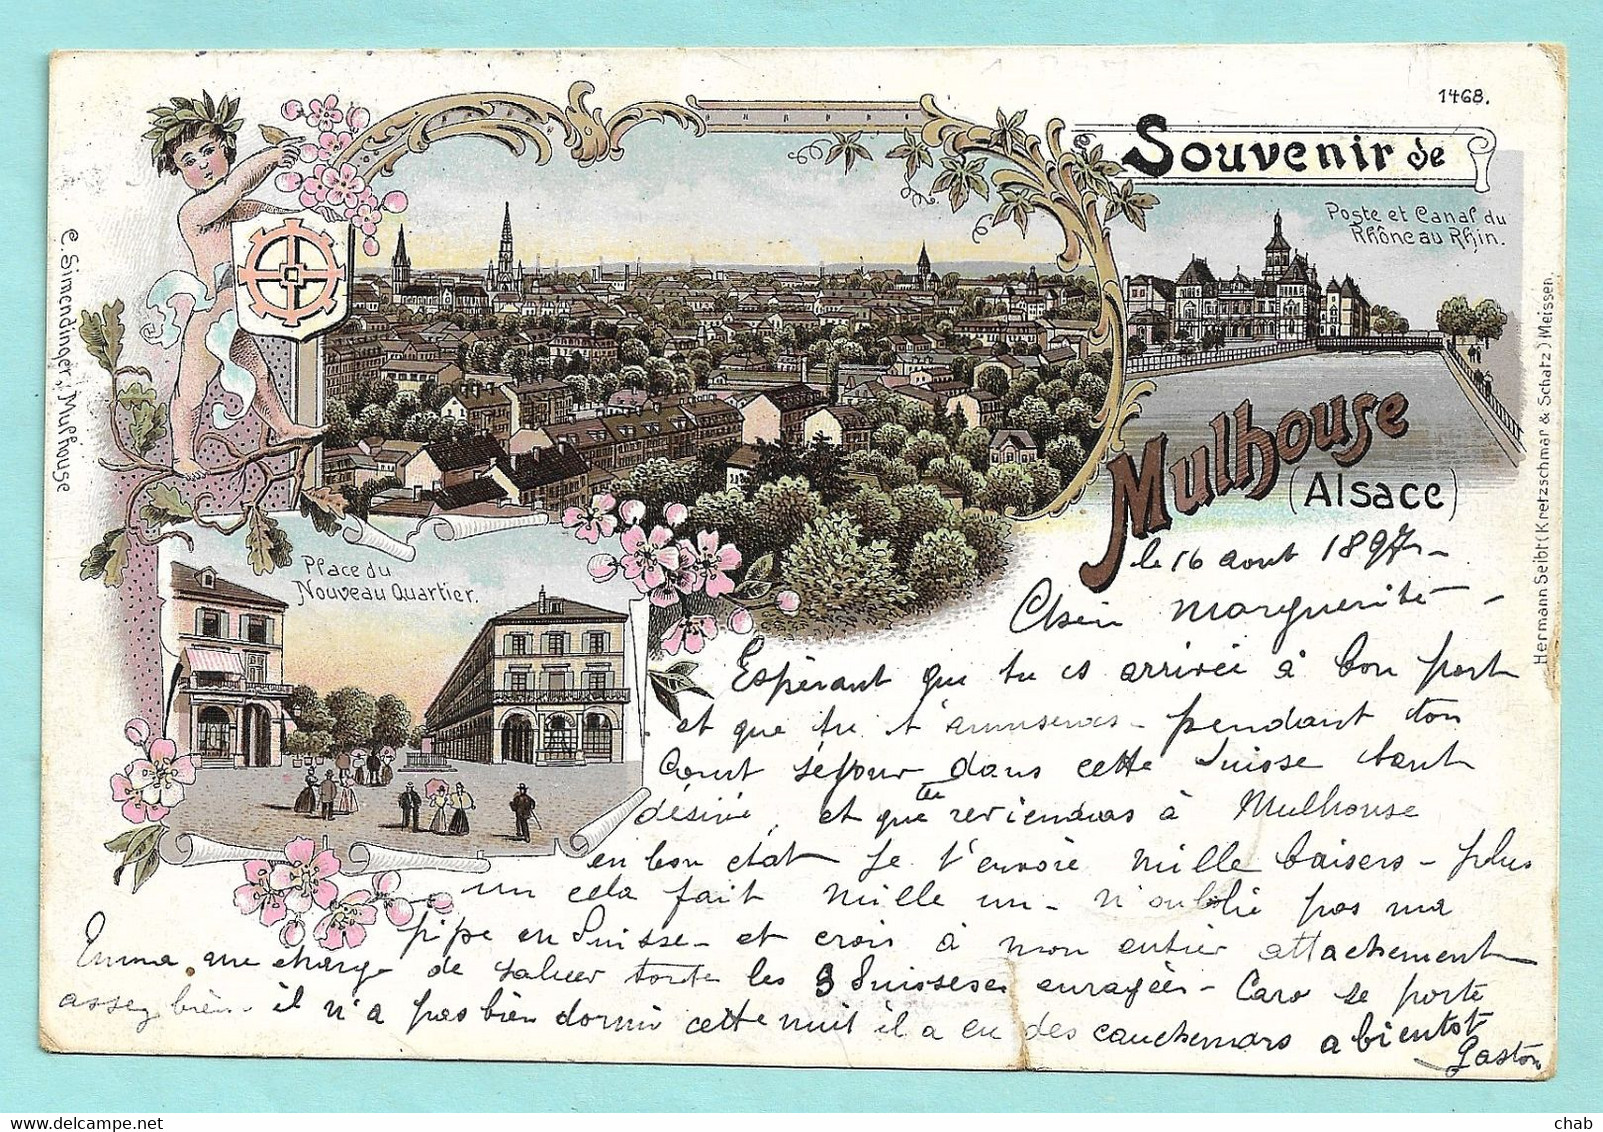 1468.
Souvenir de
Mulhouse
(Alsace)
Poste et Canal du
Rhône au Rhin.
Place du
Nouveau Quartier.
C. Simendinger, Mulhouse
Hermann Seibt (Kretzschmar & Schatz) Meissen.
le 16 aout 1897 –
Marguerite –
Espérant que tu es arrivée à bon port
et que tu t'amuseras – pendant ton
court séjour dans cette Suisse tant
désirée, et que tu reviendras à Mulhouse
en bon etat je t'envoie mille baisers – plus
un cela fait mille un – n'oublie pas ma
pipe en Suisse – et crois à mon entier attachement
Emma me charge de saluer toute les 3 Suissesses enragées – Caro se porte
assez bien – il n'a pas bien dormi cette nuit il a eu des cauchemars a bientot
Gaston
chab